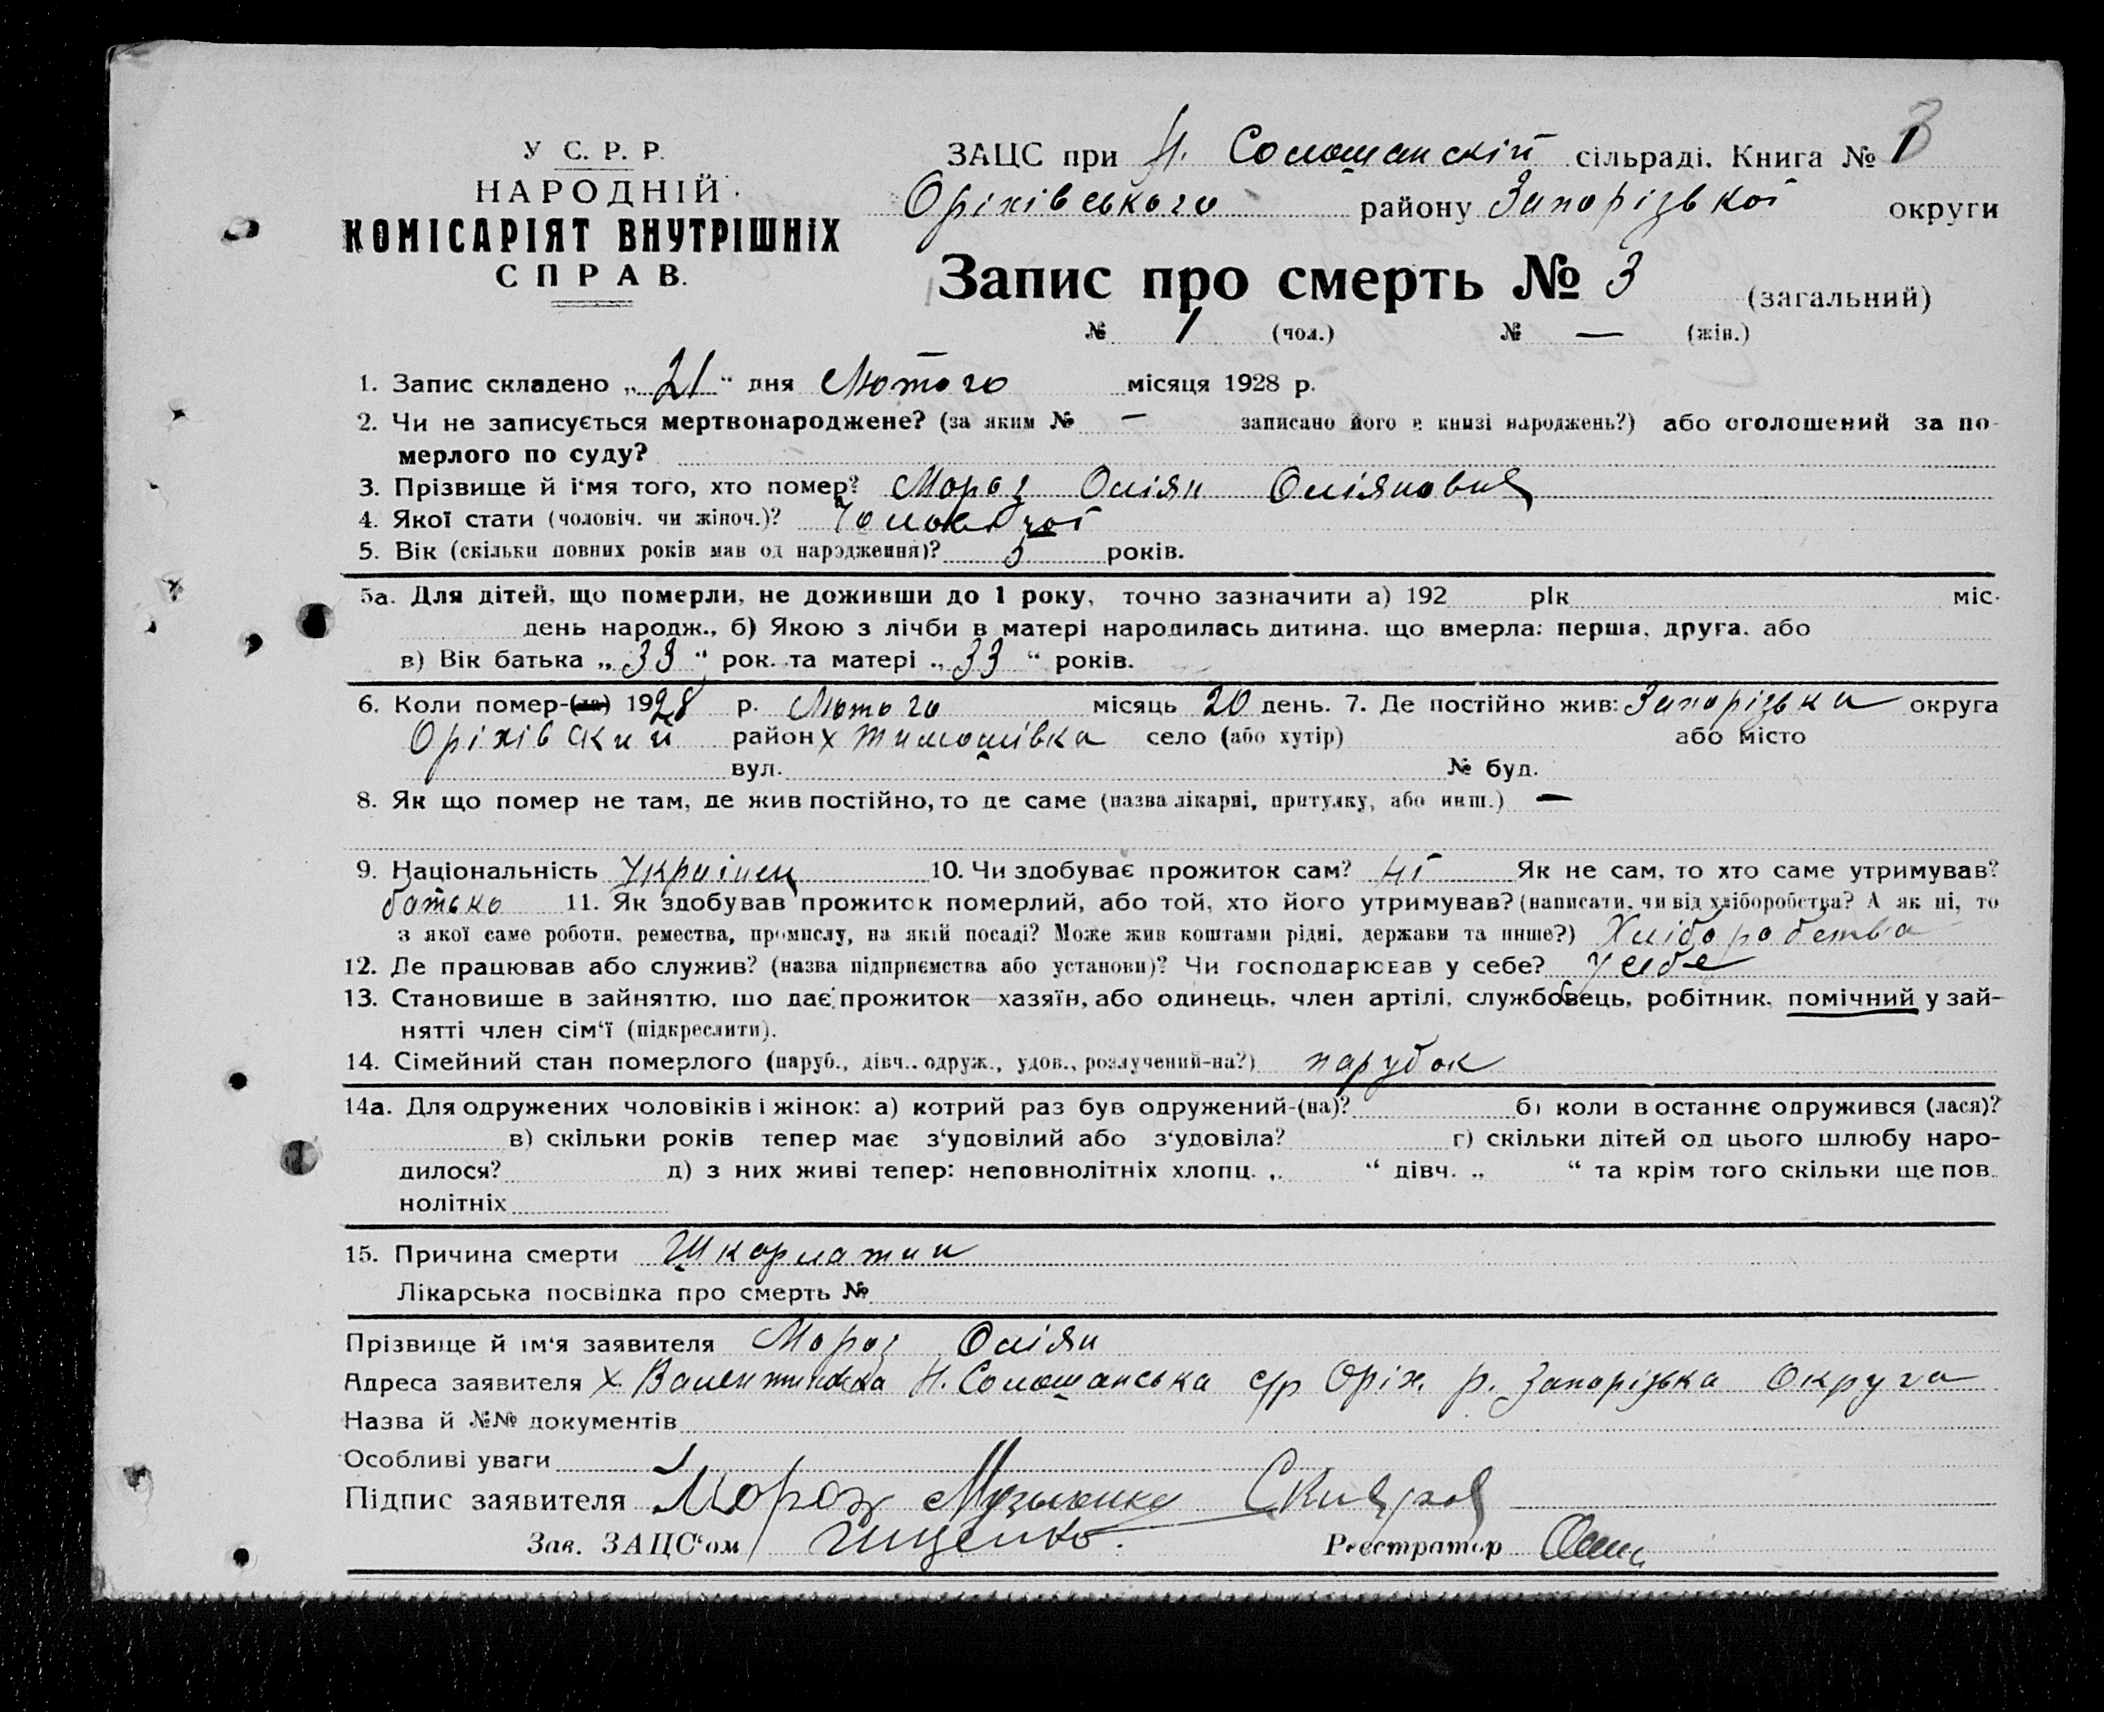 У С. Р. Р.
НАРОДНІЙ
КОМІСАРІЯТ ВНУТРІШНІХ
СПРАВ.
ЗАЦС при Н. Солошанскій сільраді. Книга № 1
Оріхівського району Запорізькоі округи
Запис про смерть № 3 (загальний)
№ 1 (чол.) № — (жін.)
1. Запис складено „21“ дня Лютого місяця 1928 р.
2. Чи не записується мертвонароджене? (за яким № — записано його в книзі народжень?) або оголошений за по-
мерлого по суду?
3. Прізвище й ім‘я того, хто помер? Мороз Оліян Оліянович
4. Якої стати (чоловіч. чи жіноч.)? Чоловічоі
5. Вік (скільки повних років мав од народження)? 5 років.
5а. Для дітей, що померли, не доживши до 1 року, точно зазначити а) 192 рік міс.
день народж., б) Якою з лічби в матері народилась дитина, що вмерла: перша, друга, або
в) Вік батька „33“ рок. та матері „33“ років.
6. Коли помер-(ла) 1928 р. Лютого місяць 20 день. 7. Де постійно жив: Запорізька округа
Оріхівский район х Тимошівка село (або хутір) або місто
вул. № буд.
8. Як що помер не там, де жив постійно, то де саме (назва лікарні, притулку, або инш.) —
9. Національність Украінец 10. Чи здобуває прожиток сам? ні Як не сам, то хто саме утримував?
батько 11. Як здобував прожиток померлий, або той, хто його утримував? (написати, чи від хліборобства? А як ні, то
з якої саме роботи, ремества, промислу, на якій посаді? Може жив коштами рідні, держави та инше?) Хліборобства
12. Де працював або служив? (назва підприємства або установи)? Чи господарював у себе? У себе
13. Становише в зайняттю, що дає прожиток—хазяїн, або одинець, член артілі, службовець, робітник, помічний у зай-
нятті член сім‘ї (підкреслити).
14. Сімейний стан померлого (паруб., дівч.. одруж., удов., розлучений-на?) парубок
14а. Для одружених чоловіків і жінок: а) котрий раз був одружений-(на)? б) коли в останнє одружився (лася)?
в) скільки років тепер має з‘удовілий або з‘удовіла? г) скільки дітей од цього шлюбу наро-
дилося? д) з них живі тепер: неповнолітніх хлопц. „ “ дівч. „ “ та крім того скільки ще пов.
нолітніх
15. Причина смерти Шкарлатин
Лікарська посвідка про смерть №
Прізвище й ім‘я заявителя Мороз Оліян
Адреса заявителя х. Валентинівка Н. Солошанська с/р Оріх. р. Запорізька Округа
Назва й №№ документів
Особливі уваги
Підпис заявителя Мороз
Зав. ЗАЦС‘ом Реєстратор